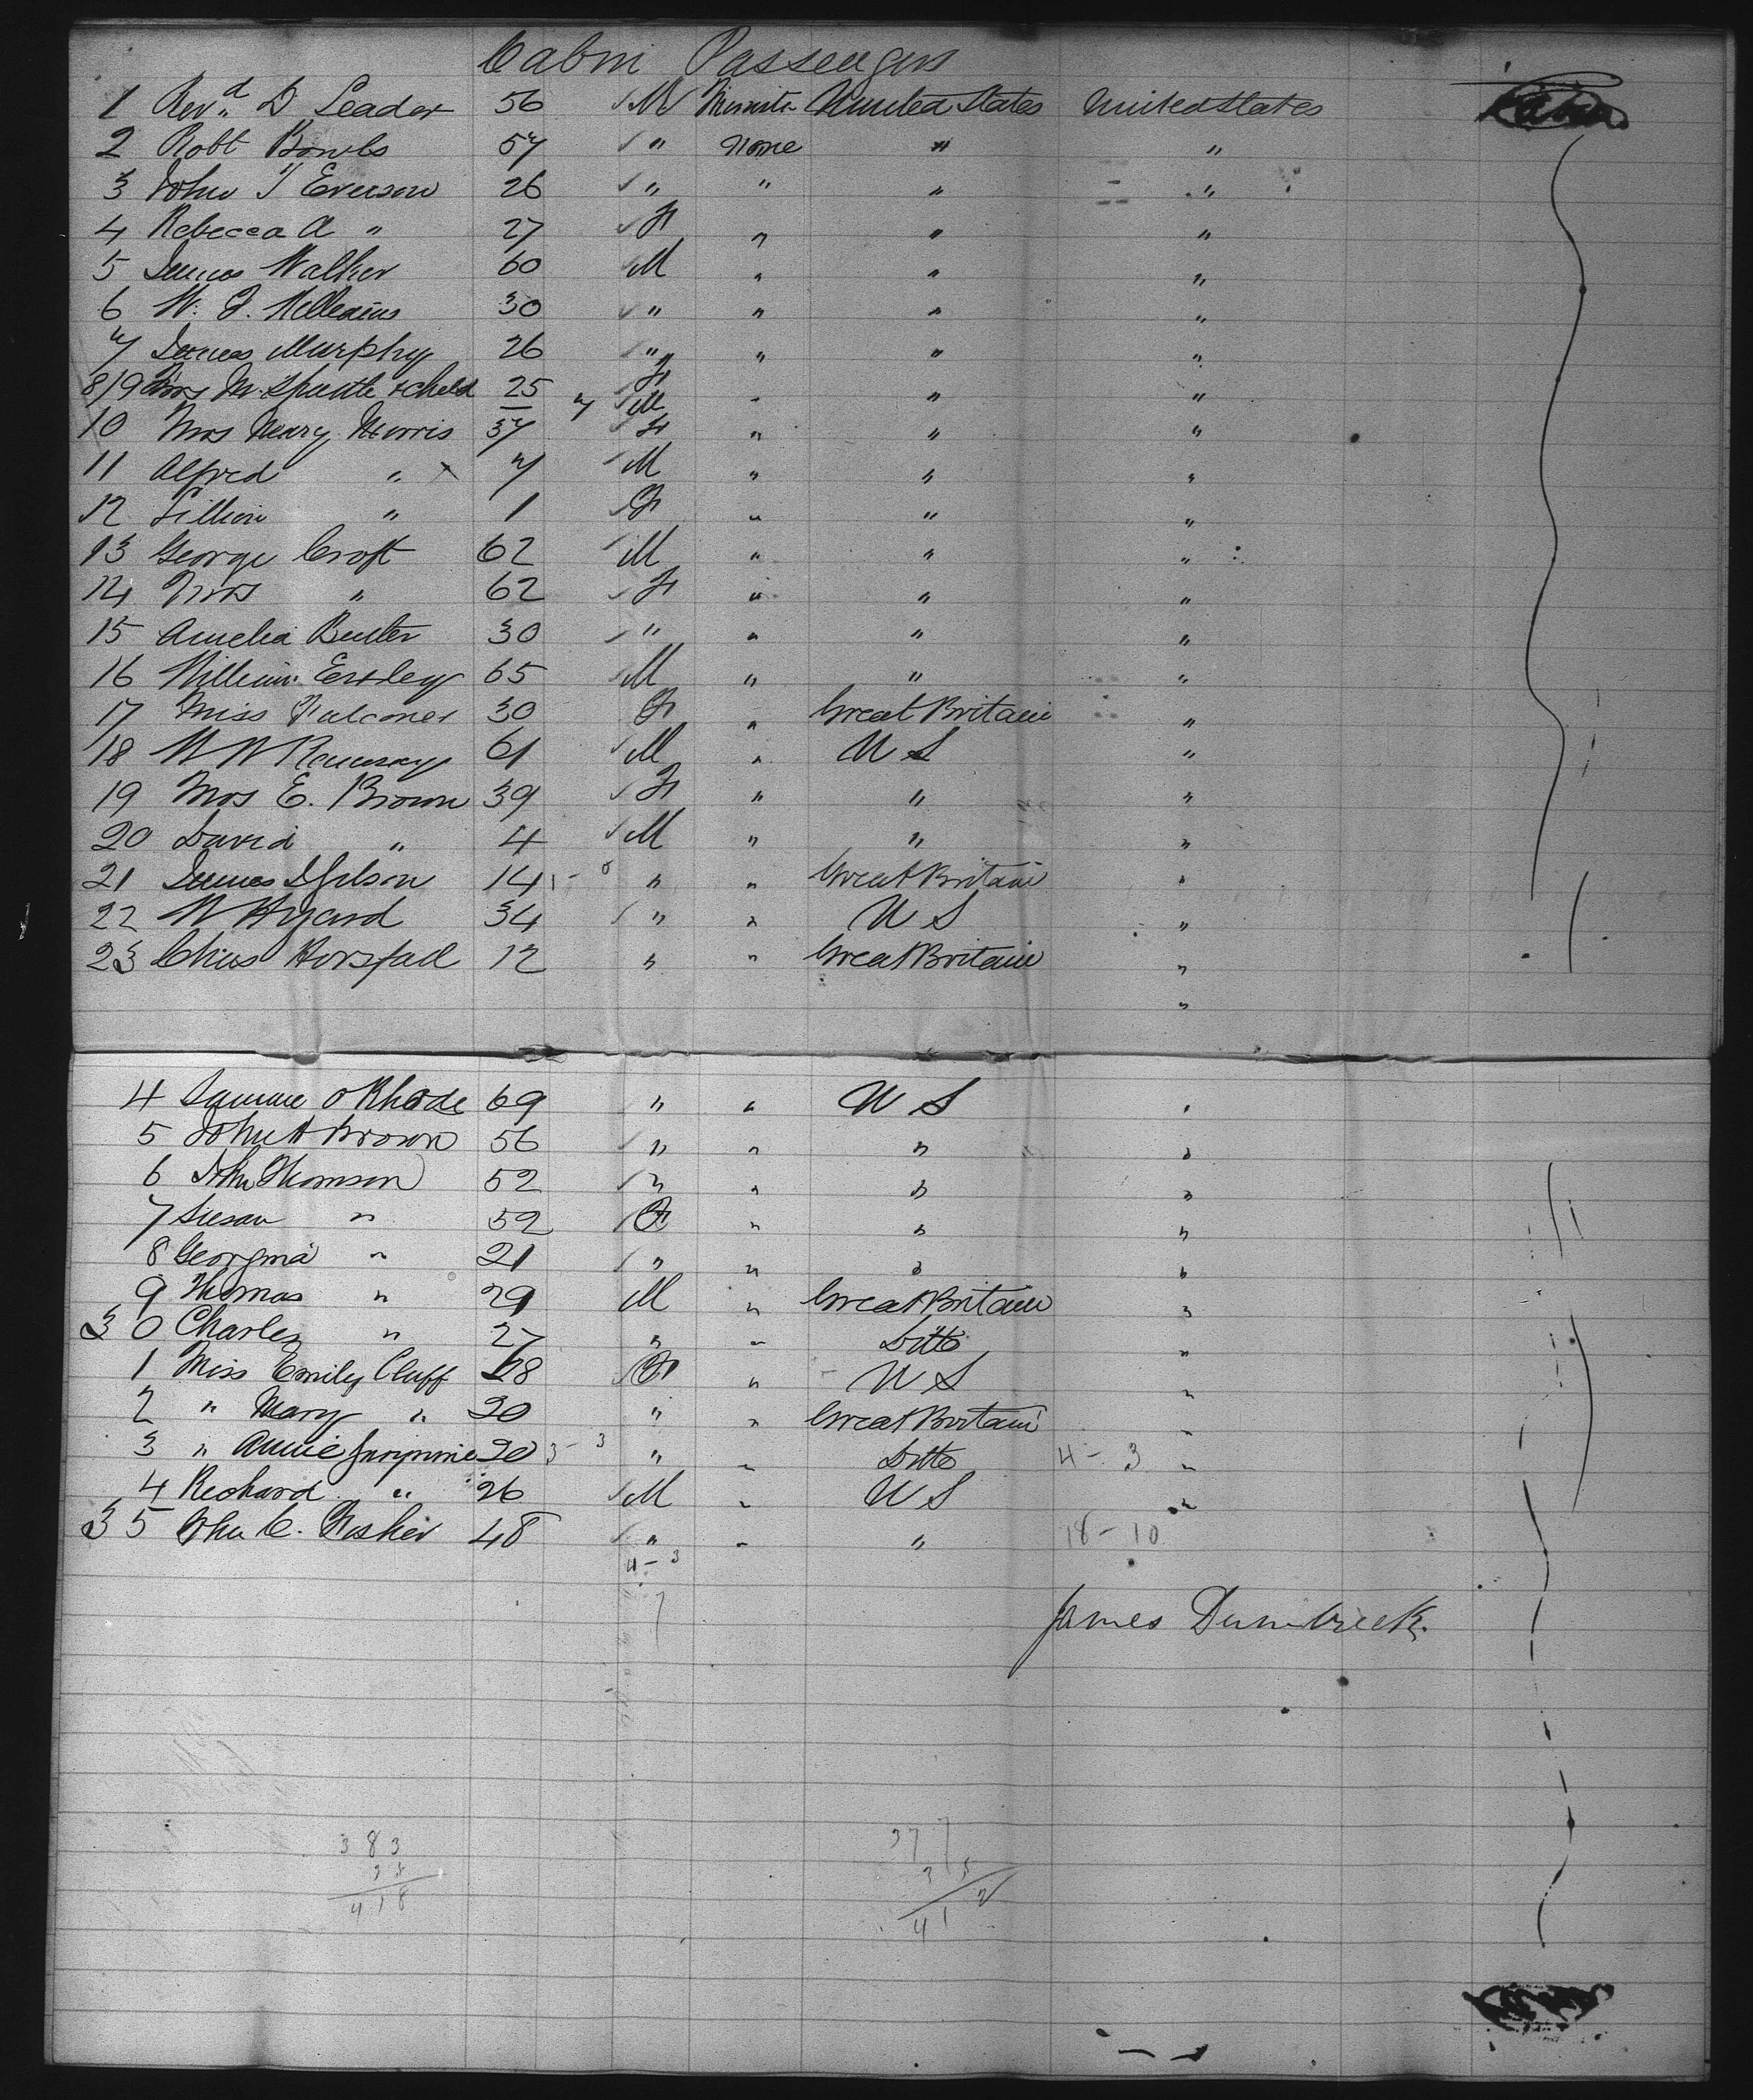 Cabin Passengers
1 Revd. D. Leader 56 M United States United States
2 Robt Bowls 57 " None " "
3 John T Everson 26 " " " "
4 Rebecca A " 27 F " " "
5 James Walker 60 M " " "
6 W. J. Williams 30 " " " "
7 James Murphy 26 " " " "
8/9 Mrs M. & Child 25 F " " "
7 M
10 Mrs Mary Morris 37 F " " "
11 Alfred " 7 M " " "
12 Lillian " 1 F " " "
13 George Croft 62 M " " "
14 Mrs " 62 F " " "
15 Amelia 30 " " " "
16 William 65 M " " "
17 Miss Falconer 30 F " Great Britain "
18 W W Ramsay 61 M " U S "
19 Mrs E. Brown 39 F " " "
20 David " 4 M " " "
21 James 14 " " Great Britain "
22 W 34 " " U S "
23 Chas Horsfall 12 " " Great Britain "
"
4 O Rhode 69 " " U S "
5 John H Brown 56 " " " "
6 John Thomson 52 " " " "
7 Susan " 52 F " " "
8 Georgina " 21 " " " "
9 Thomas " 29 M " Great Britain "
30 Charles " 27 " " Ditto "
1 Miss Emily Cluff 28 F " U S "
2 " Mary " 20 " " Great Britain "
3 " Annie 20 3-3 " " Ditto 4-3 "
4 Richard " 26 M " U S "
35 John C. Fisher 48 " " " 18-10
4-3
James Dumbreck.
383 377
35 35
418 412